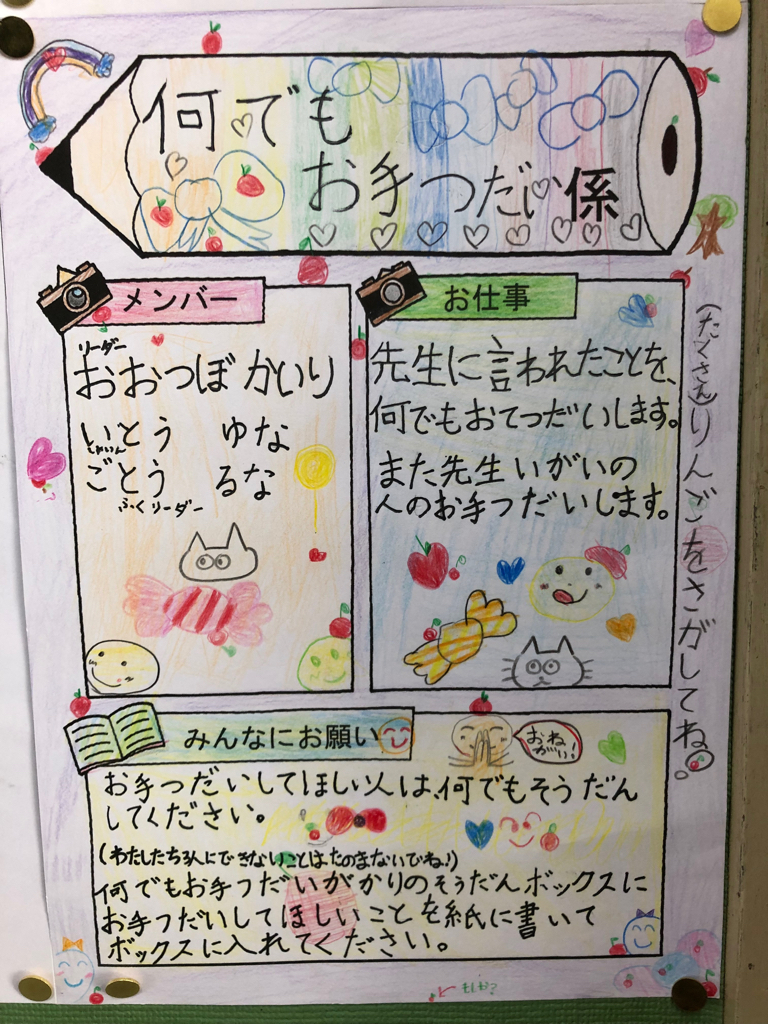 何でも
お手つだい係
メンバー
リーダー
おおつぼ かいり
いとう ゆな
ごとう るな
ふくリーダー
お仕事
先生に言われたことを、
何でもおてつだいします。
また先生いがいの
人のお手つだいします。
(たくさん)りんごをさがしてね。
みんなにお願い
おねがい!
お手つだいしてほしい人は、何でもそうだん
してください。
(わたしたち3人にできないことはたのまないでね!)
何でもお手つだいがかりのそうだんボックスに
お手つだいしてほしいことを紙に書いて
ボックスに入れてください。